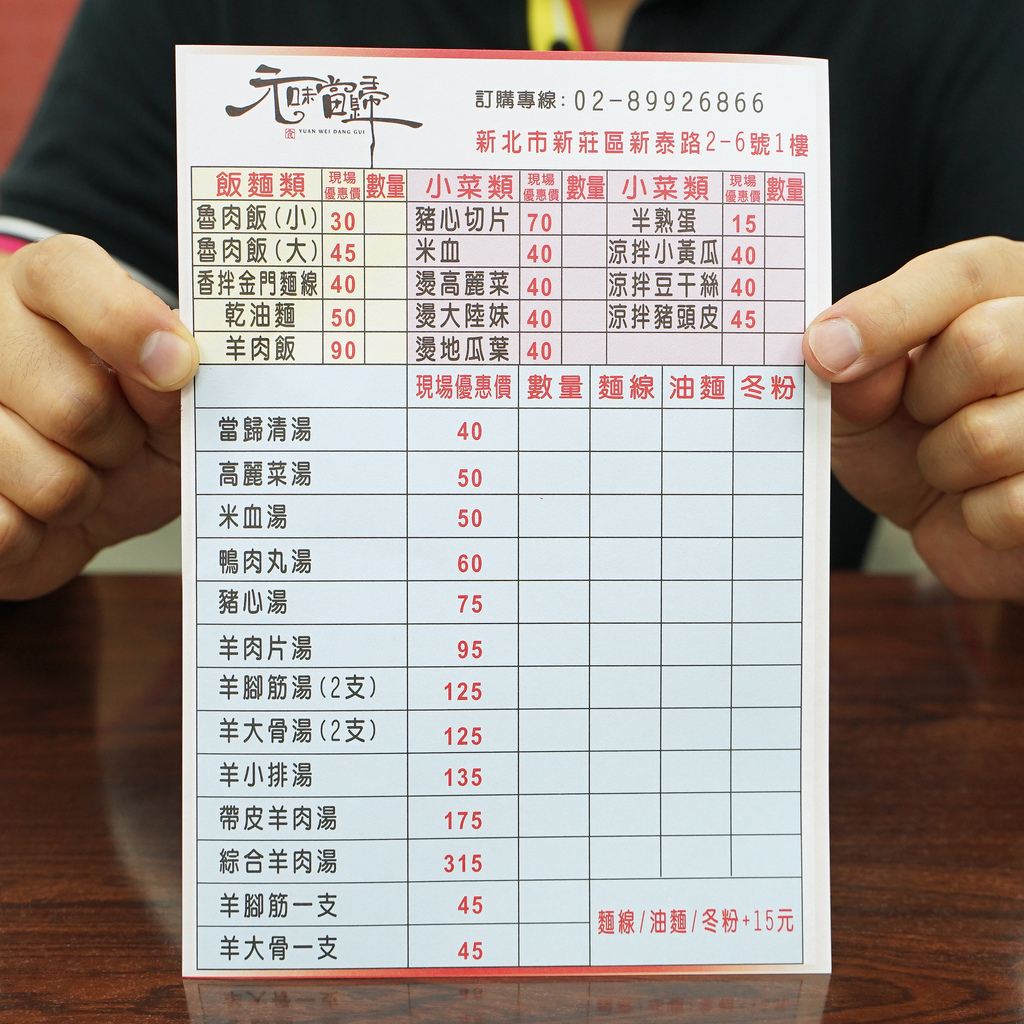 元味當歸
食 YUAN WEI DANG GUI
訂購專線:02-89926866
新北市新莊區新泰路2-6號1樓
飯麵類 現場優惠價 數量 小菜類 現場優惠價 數量 小菜類 現場優惠價 數量
魯肉飯(小) 30 豬心切片 70 半熟蛋 15
魯肉飯(大) 45 米血 40 涼拌小黃瓜 40
香拌金門麵線 40 燙高麗菜 40 涼拌豆干絲 40
乾油麵 50 燙大陸妹 40 涼拌豬頭皮 45
羊肉飯 90 燙地瓜葉 40
現場優惠價 數量 麵線 油麵 冬粉
當歸清湯 40
高麗菜湯 50
米血湯 50
鴨肉丸湯 60
豬心湯 75
羊肉片湯 95
羊腳筋湯(2支) 125
羊大骨湯(2支) 125
羊小排湯 135
帶皮羊肉湯 175
綜合羊肉湯 315
羊腳筋一支 45
麵線/油麵/冬粉+15元
羊大骨一支 45